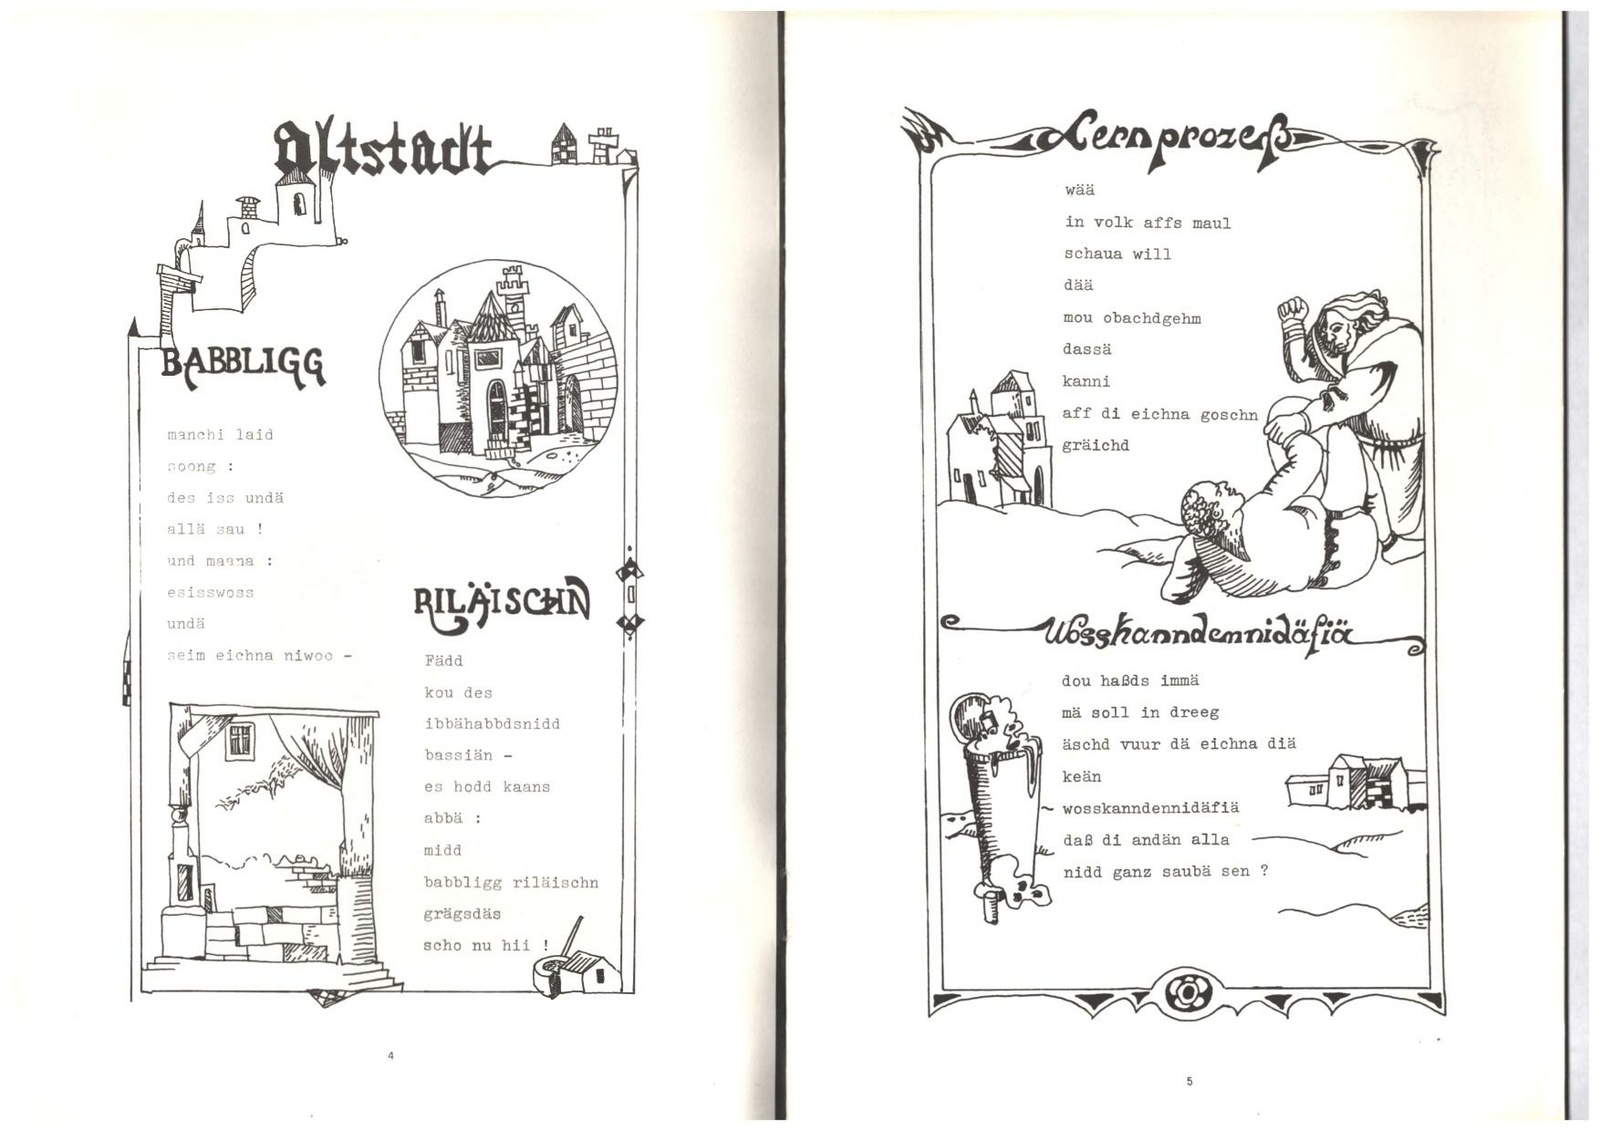 altstadt
BABBLIGG
manchi laid
soong :
des iss undä
allä sau !
und maana :
esisswoss
undä
seim eichna niwoo -
RILÄISCHN
Fädd
kou des
ibbähabbdsnidd
bassiän -
es hodd kaans
abbä :
midd
babbligg riläischn
grägsdäs
scho nu hii !
4
Lernprozeß
wää
in volk affs maul
schaua will
dää
mou obachdgehm
dassä
kanni
aff di eichna goschn
gräichd
Wosskanndennidäfiä
dou haßds immä
mä soll in dreeg
äschd vuur dä eichna diä
keän
wosskanndennidäfiä
daß di andän alla
nidd ganz saubä sen ?
5